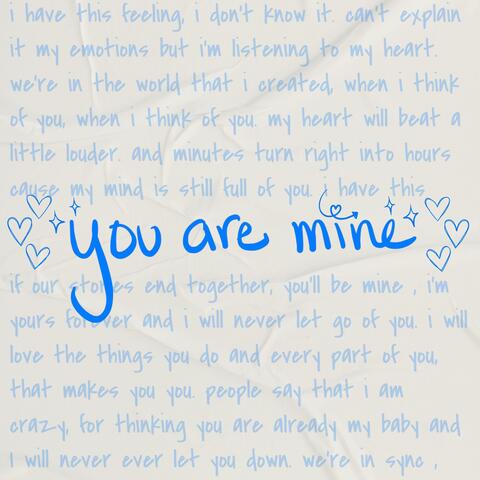 i have this feeling, i don't know it. can't explain
it my emotions but i'm listening to my heart.
we're in the world that i created, when i think
of you, when i think of you. my heart will beat a
little louder. and minutes turn right into hours
cause my mind is still full of you. i have this
you are mine
if our stories end together, you'll be mine , i'm
yours forever and i will never let go of you. i will
love the things you do and every part of you,
that makes you you. people say that i am
crazy, for thinking you are already my baby and
i will never ever let you down. we're in sync ,